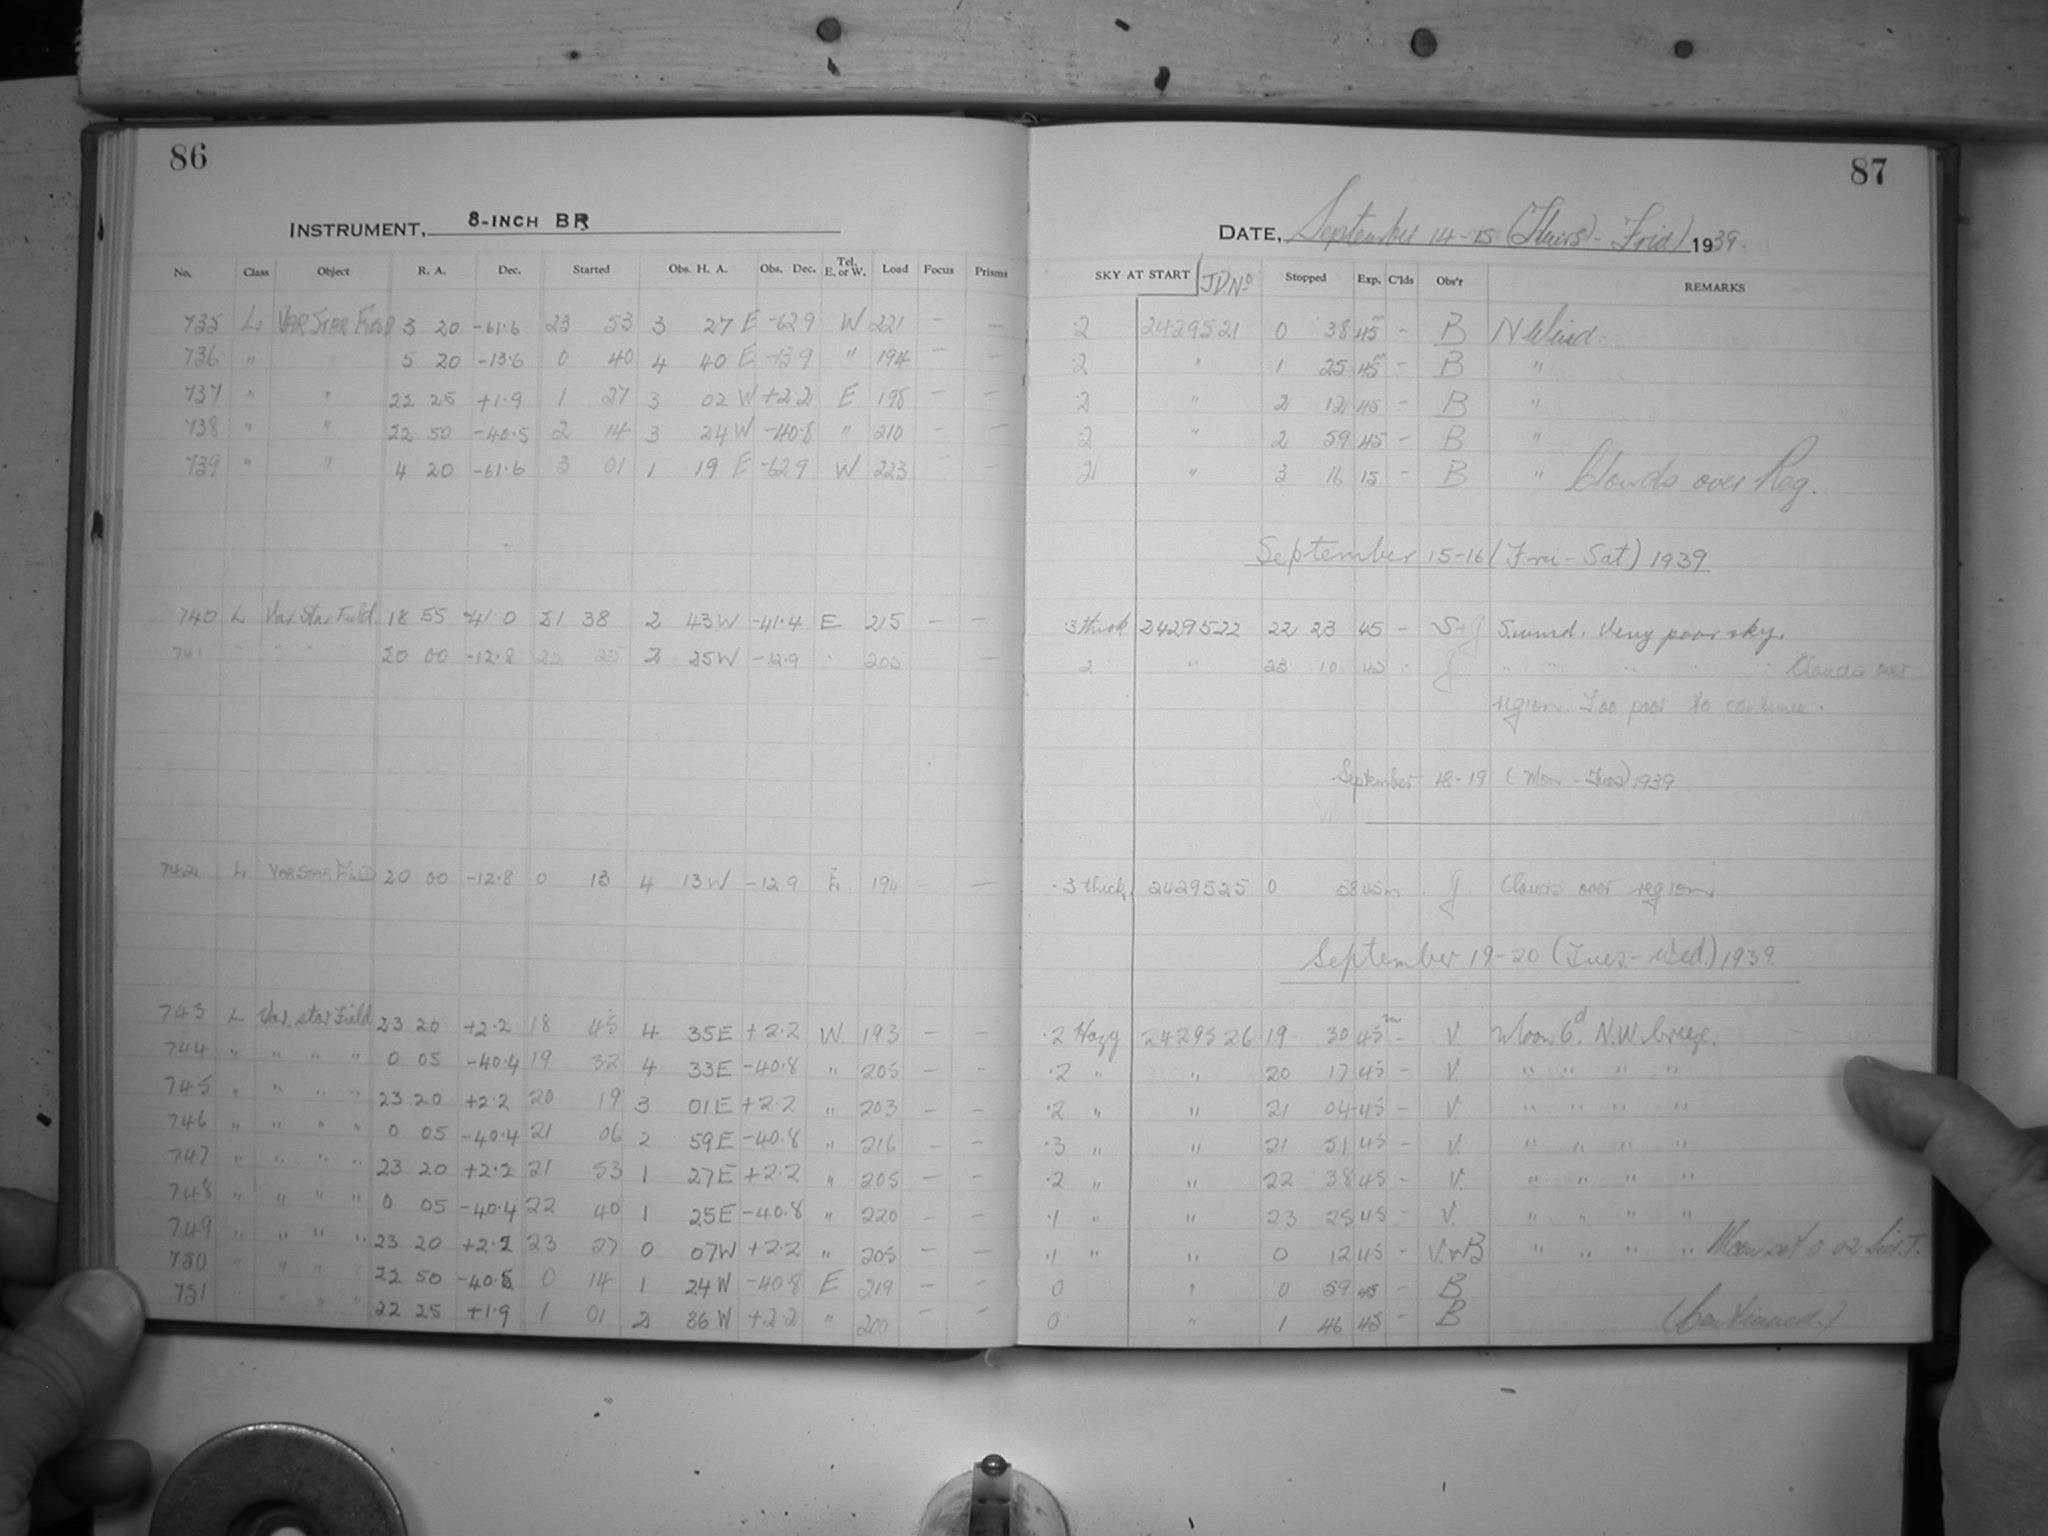 86
INSTRUMENT, 8-INCH BR
No. Class Object R. A. Dec. Started Obs. H. A. Obs. Dec. Tel. E. or W. Load Focus Prisms
735 L VAR STAR FIELD 3 20 -61.6 23 53 3 27 E -62.9 W 221 - -
736 " " 5 20 -13.6 0 40 4 40 E -13.9 " 194 - -
737 " " 22 25 +1.9 1 27 3 02 W +2.2 E 198 - -
738 " " 22 50 -40.5 2 14 3 24 W -40.8 " 210 - -
739 " " 4 20 -61.6 3 01 1 19 E -62.9 W 223 - -
740 L Var Star Field 18 55 -41.0 21 38 2 43 W -41.4 E 215 - -
741 " " " " 20 00 -12.8 22 25 2 25 W -12.9 " 205 -
742 L VAR STAR FIELD 20 00 -12.8 0 13 4 13 W -12.9 E 194 - -
743 L Var. star Field 23 20 +2.2 18 45 4 35 E +2.2 W. 193 - -
744 " " " " 0 05 -40.4 19 32 4 33 E -40.8 " 205 - -
745 " " " " 23 20 +2.2 20 19 3 01 E +2.2 " 203 - -
746 " " " " 0 05 -40.4 21 06 2 59 E -40.8 " 216 - -
747 " " " " 23 20 +2.2 21 53 1 27 E +2.2 " 205 - -
748 " " " " 0 05 -40.4 22 40 1 25 E -40.8 " 220 - -
749 " " " " 23 20 +2.2 23 27 0 07 W +2.2 " 205 - -
750 " " " " 22 50 -40.5 0 14 1 24 W -40.8 E 219 - -
751 " " " " 22 25 +1.9 1 01 2 36 W +2.2 " 200 - -
87
DATE, September 14-15 (Thurs - Frid) 1939.
SKY AT START JD No Stopped Exp. C'lds Obs'r REMARKS
.2 2429521 0 38 45m - B N Wind.
.2 " 1 25 45m - B "
.2 " 2 12 45 - B "
.2 " 2 59 45 - B "
.2 " 3 16 15 - B " Clouds over Reg.
September 15-16 (Fri - Sat) 1939
.3 thick 2429522 22 23 45 - S+J S. wind. Very poor sky.
.2 " 23 10 45 - J " " " " " Clouds over
region. Too poor to continue.
September 18-19 (Mon - Tues) 1939
.3 thick 2429525 0 58 45m . J Clouds over region
September 19-20 (Tues - Wed.) 1939.
.2 Hazy 2429526 19 30 45m - V. Moon 6d. N.W. breeze.
.2 " " 20 17 45 - V. " " " "
.2 " " 21 04 45 - V. " " " "
.3 " " 21 51 45 - V. " " " "
.2 " " 22 38 45 - V. " " " "
.1 " " 23 25 45 - V. " " " "
.1 " " 0 12 45 - V. + B " " " " Moon set 0 02 Sid. T.
0 " 0 59 45 - B
0 " 1 46 45 - B (Continued.)